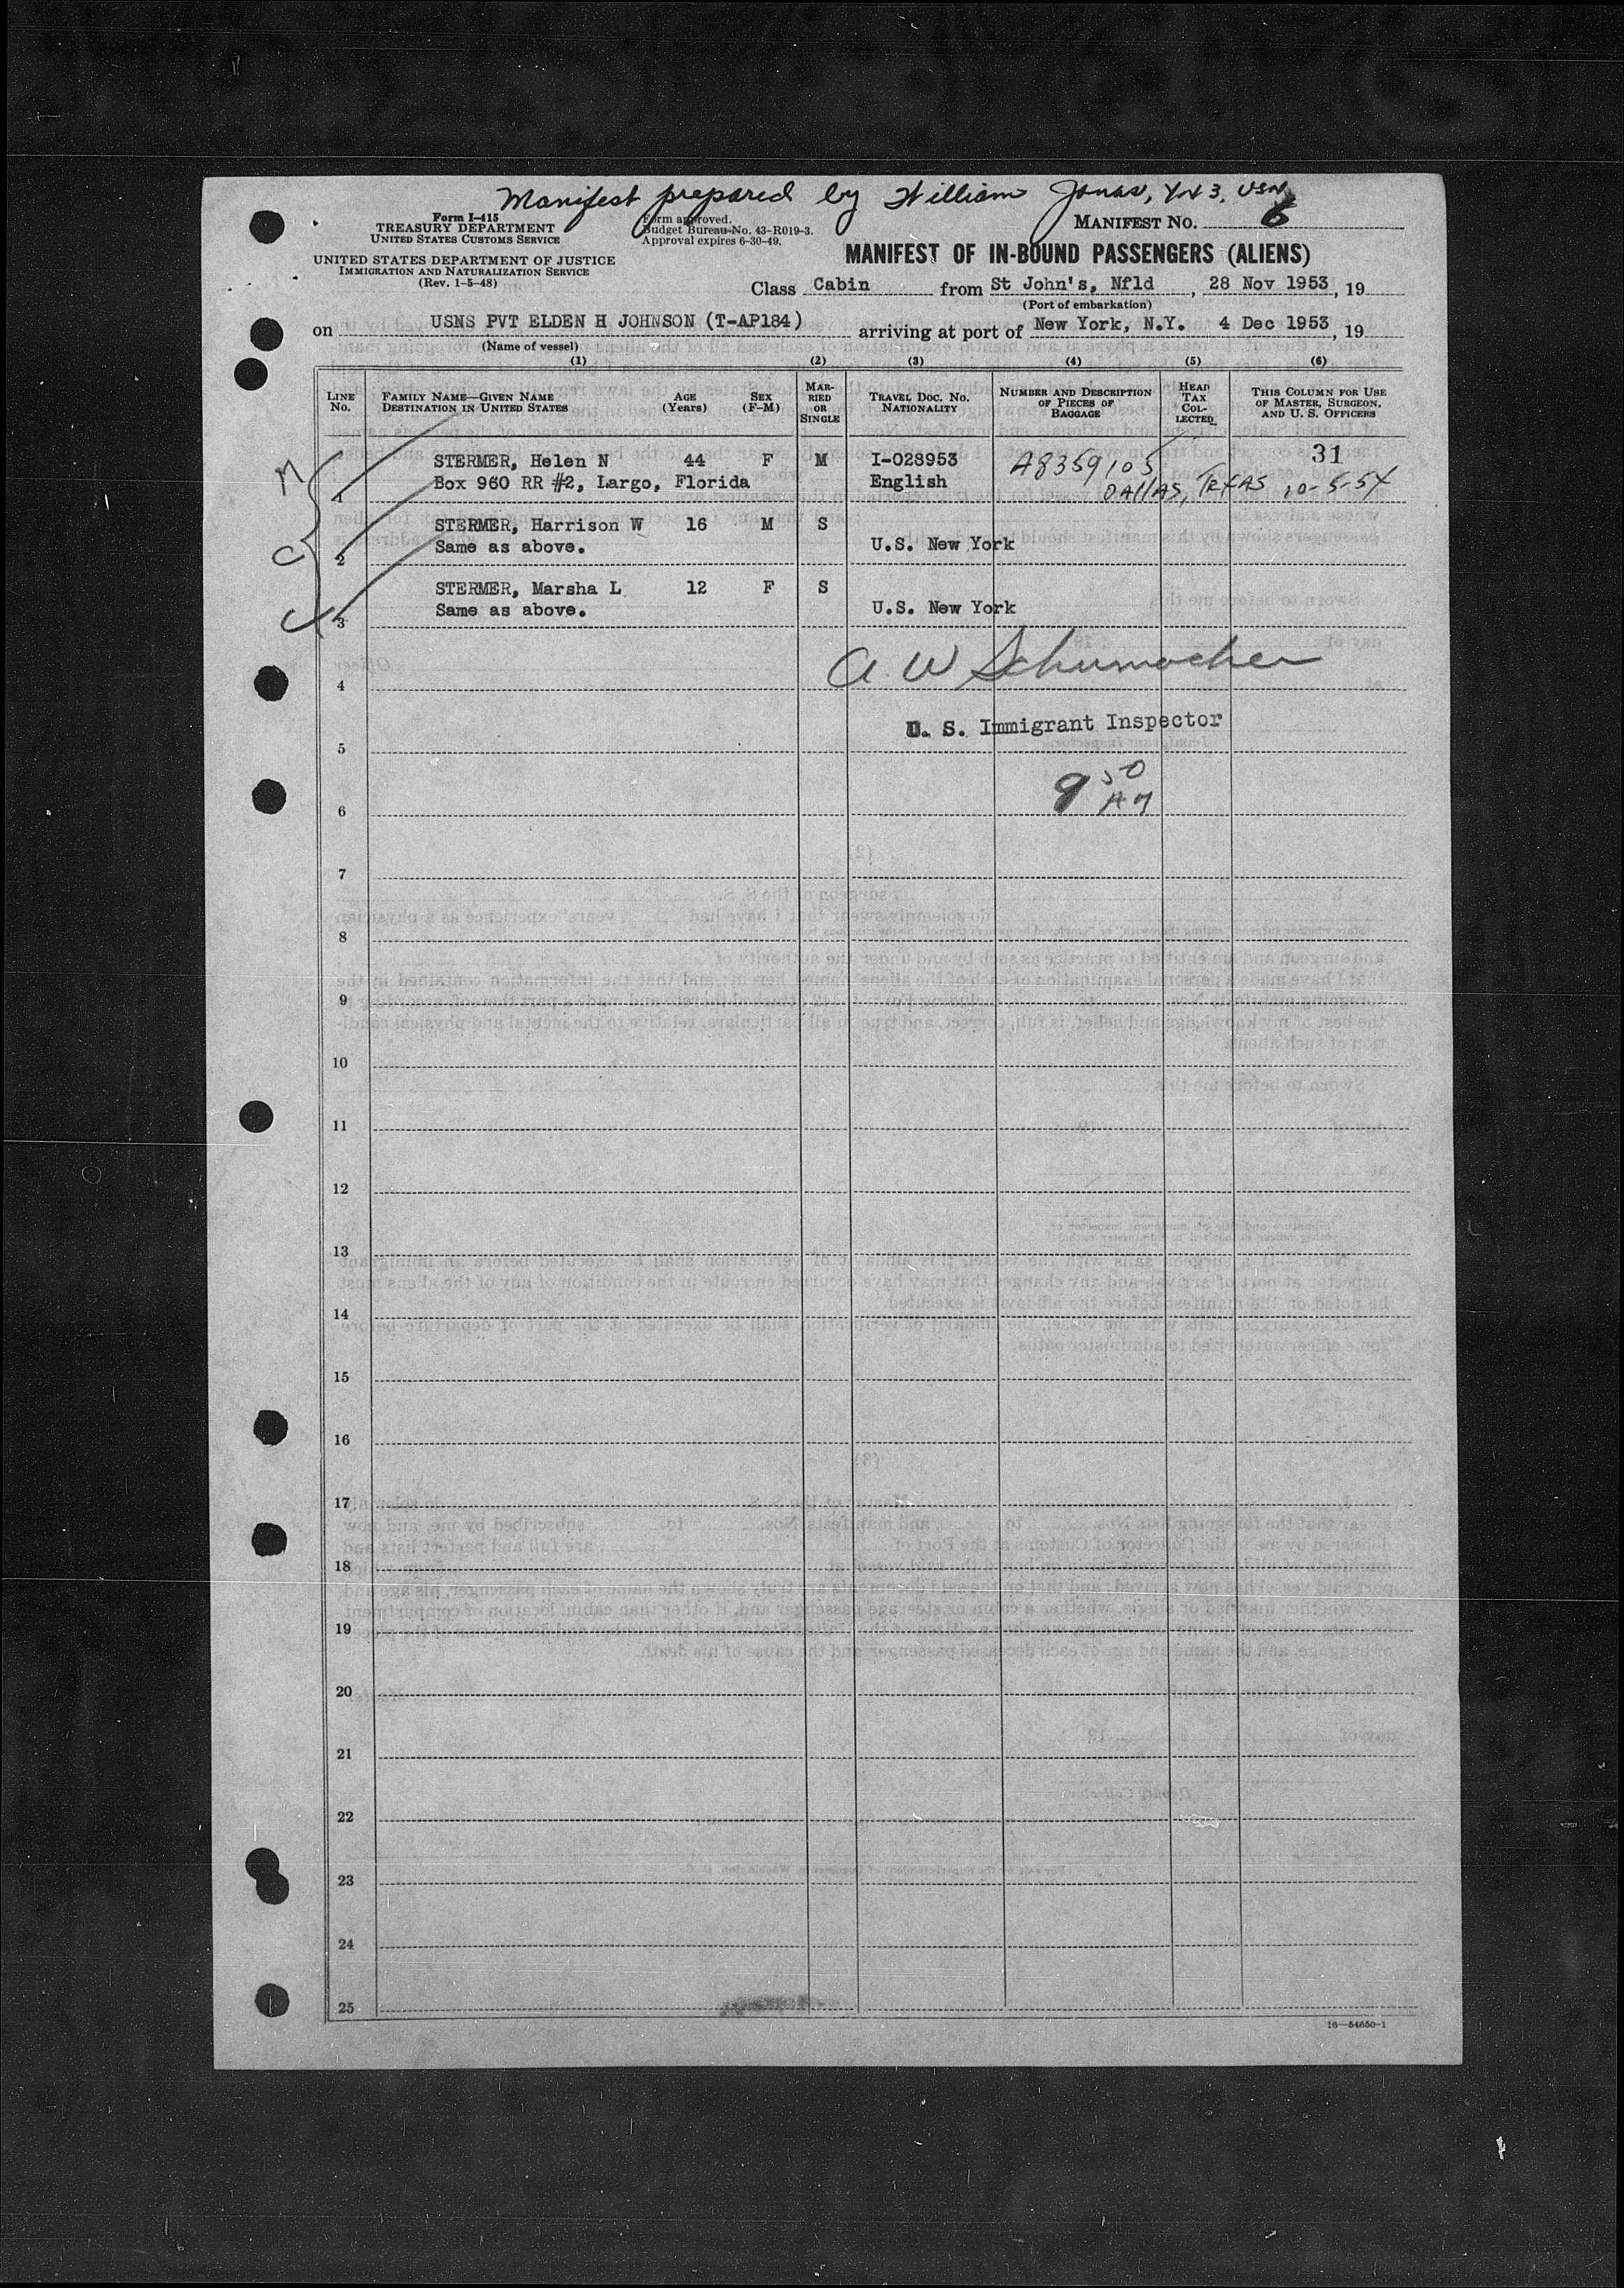 Manifest prepared by William Jonas, YN3, USN
Form I-415
TREASURY DEPARTMENT
UNITED STATES CUSTOMS SERVICE
Form approved.
Budget Bureau No. 43-R019-3.
Approval expires 6-30-49.
MANIFEST NO. 6
UNITED STATES DEPARTMENT OF JUSTICE
IMMIGRATION AND NATURALIZATION SERVICE
(Rev. 1-5-48)
MANIFEST OF IN-BOUND PASSENGERS (ALIENS)
Class Cabin from St John's, Nfld, 28 Nov 1953, 19
(Port of embarkation)
on USNS PVT ELDEN H JOHNSON (T-AP184) arriving at port of New York, N.Y. 4 Dec 1953, 19
(Name of vessel)
(1) (2) (3) (4) (5) (6)
LINE No. FAMILY NAME—GIVEN NAME DESTINATION IN UNITED STATES AGE (Years) SEX (F-M) MARRIED OR SINGLE TRAVEL DOC. NO. NATIONALITY NUMBER AND DESCRIPTION OF PIECES OF BAGGAGE HEAD TAX COLLECTED THIS COLUMN FOR USE OF MASTER, SURGEON, AND U. S. OFFICERS
STERMER, Helen N 44 F M I-028953 A8359105 31
1 Box 960 RR #2, Largo, Florida English DALLAS, TEXAS 10-5-54
STERMER, Harrison W 16 M S
2 Same as above. U.S. New York
STERMER, Marsha L 12 F S
3 Same as above. U.S. New York
A. W Schumacher
4
U. S. Immigrant Inspector
5
9 50 AM
6
7
8
9
10
11
12
13
14
15
16
17
18
19
20
21
22
23
24
25
16—54650-1